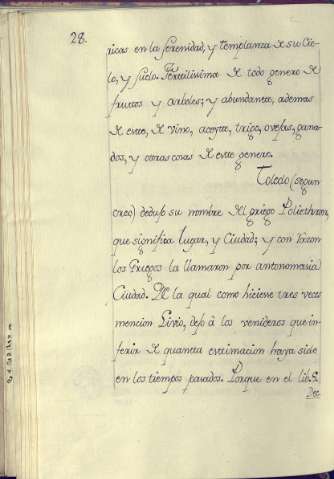 28.
ricas en la serenidad, y templanza de su Cie-
lo, y suelo. Fertilissima de todo genero de
frutos y arboles; y abundante, ademas
de este, de vino, aceyte, trigo, ovejas, gana-
dos, y otras cosas de este genero.
Toledo (segun
creo) dedujo su nombre del griego Poliethron,
que significa Lugar, y Ciudad; y con razon
los Griegos la llamaron por antonomasia
Ciudad. De la qual como hiciese tres veces
mencion Livio, dejo à los venideros que in-
ferir de quanta estimacion haya sido
en los tiempos pasados. Porque en el lib. 5.